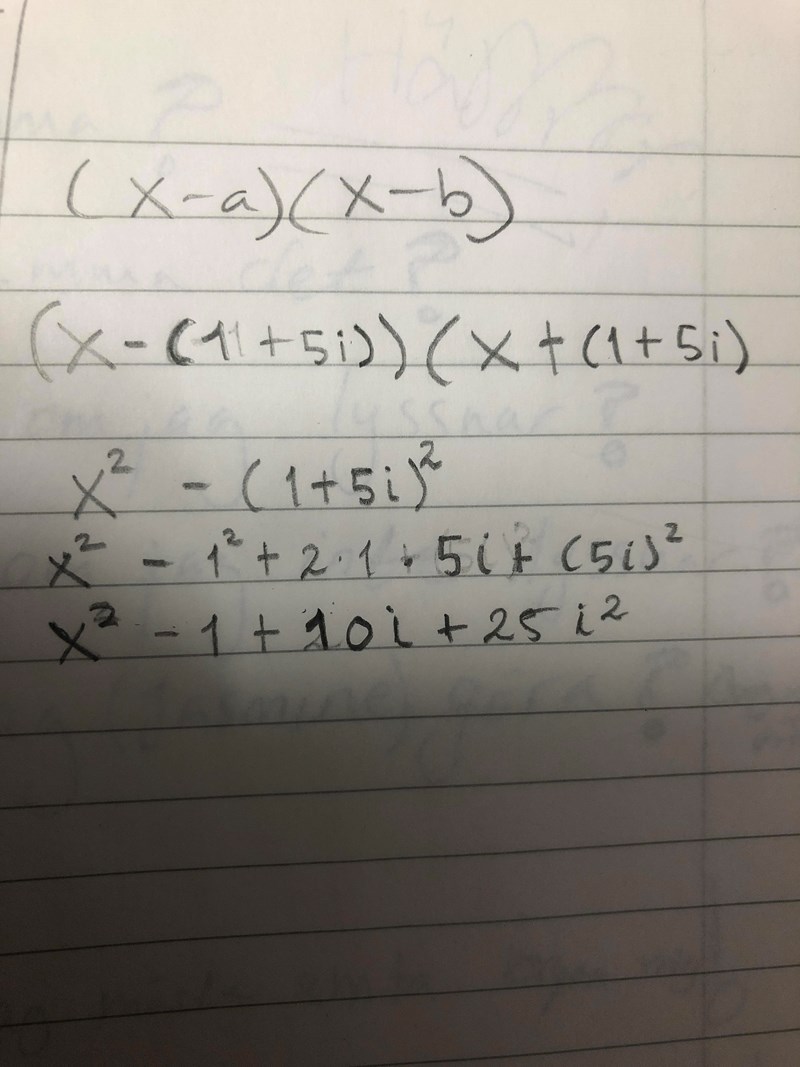 (x-a)(x-b)
(x-(1+5i))(x+(1+5i)
x² - (1+5i)²
x² - 1² + 2·1·5i + (5i)²
x² - 1 + 10i + 25i²